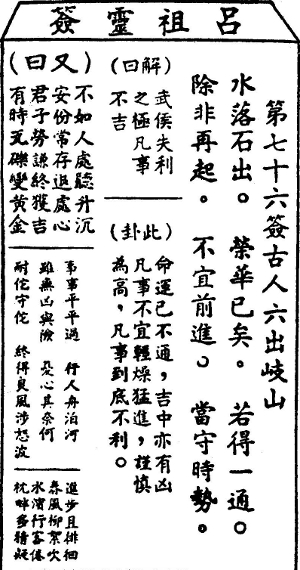 呂祖靈簽
第七十六簽古人六出岐山
水落石出。榮華已矣。若得一通。
除非再起。不宜前進。當守時勢。
(解曰)
武侯失利
之極凡事
不吉
(此卦)
命運已不通,吉中亦有凶
凡事不宜輕燥猛進,謹慎
為高,凡事到底不利。
(又曰)
不如人處聽升沉
安份常存退處心
君子勞謙終獲吉
有時瓦礫變黃金
事事平平過 行人舟泊河
雖無凶與險 憂心其奈何
耐佗守佗 終得良風涉怒波
進步且徘徊
春風柳絮吹
水濱行客倦
枕畔多猜疑